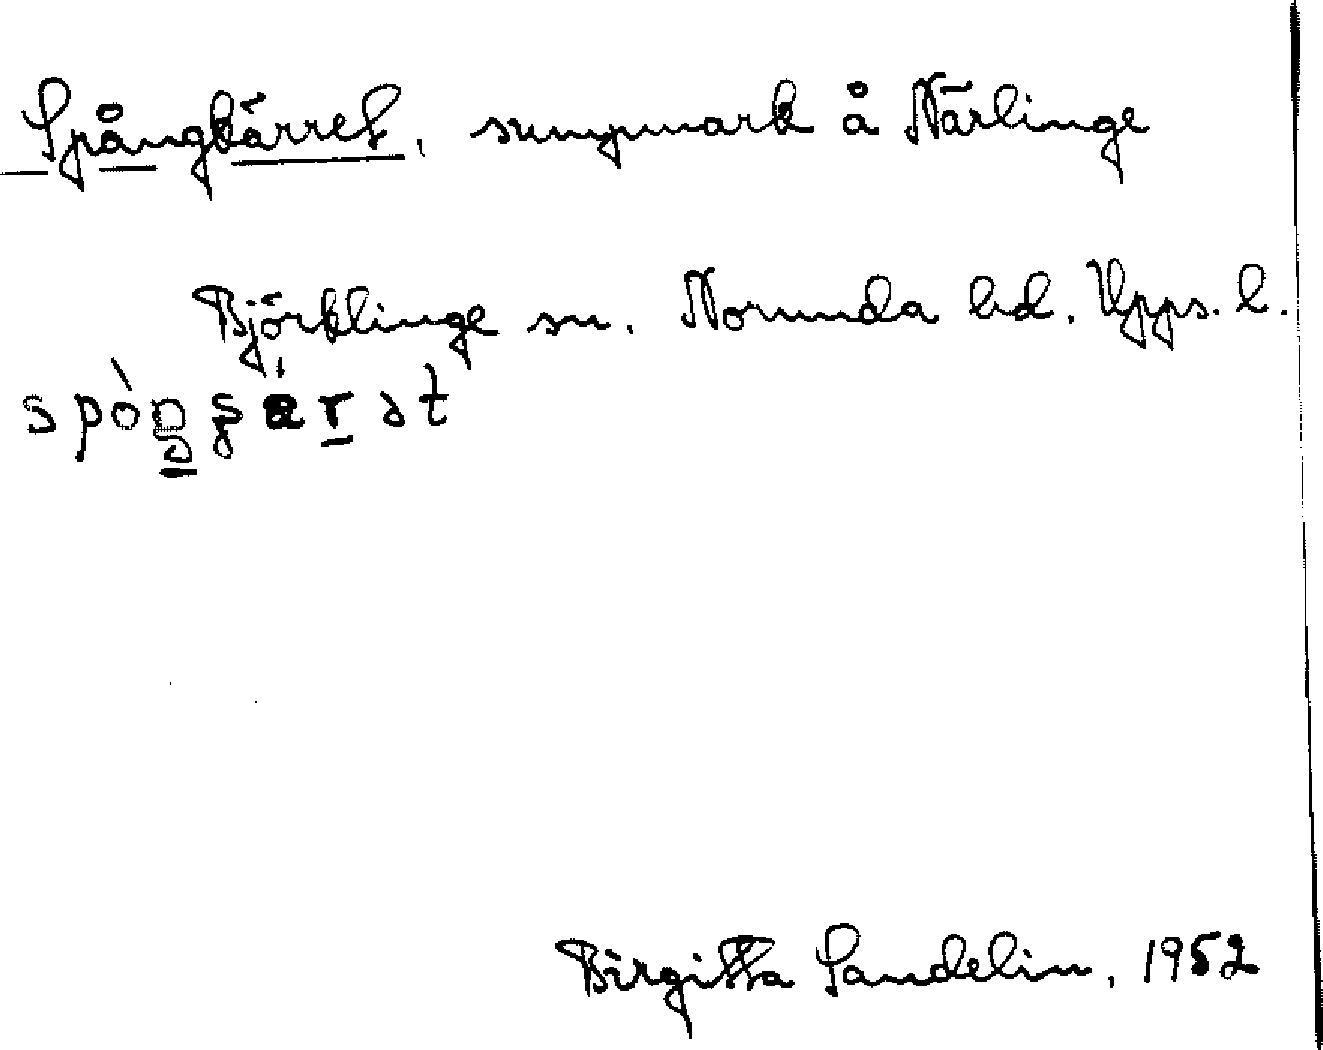 Spångkärret, sumpmark å Närlinge
Björklinge sn. Norunda hd. Upps. l.
Birgitta Sandelin, 1952